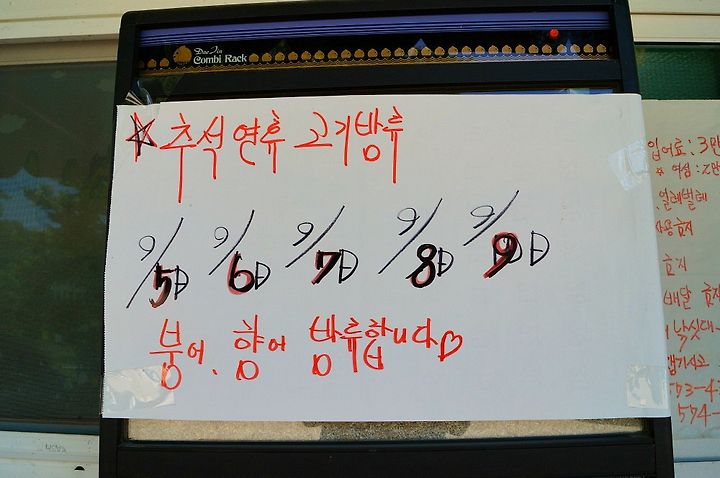 Dae Jin
Combi Rack
☆추석 연휴 고기방류
9/5日 9/6日 9/7日 9/8日 9/9日
붕어, 향어 방류합니다♡
입어료: 3만
* 여성: 2만
사용금지
금지
배달 금지
낚싯대
573-4
574-